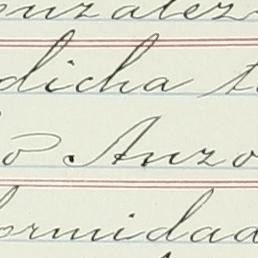 onzalez
dicha t
o Anzo
ormidad